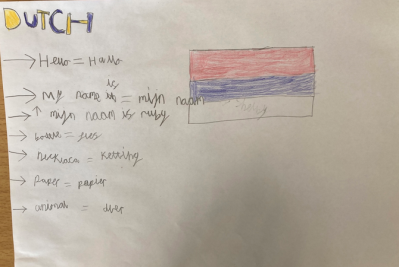 DUTCH
→ Hello = Hallo
→ My name is = mijn naam
→ ↑ mijn naam is ruby
→ bottle = fles
→ necklace = ketting
→ paper = papier
→ animal = dier